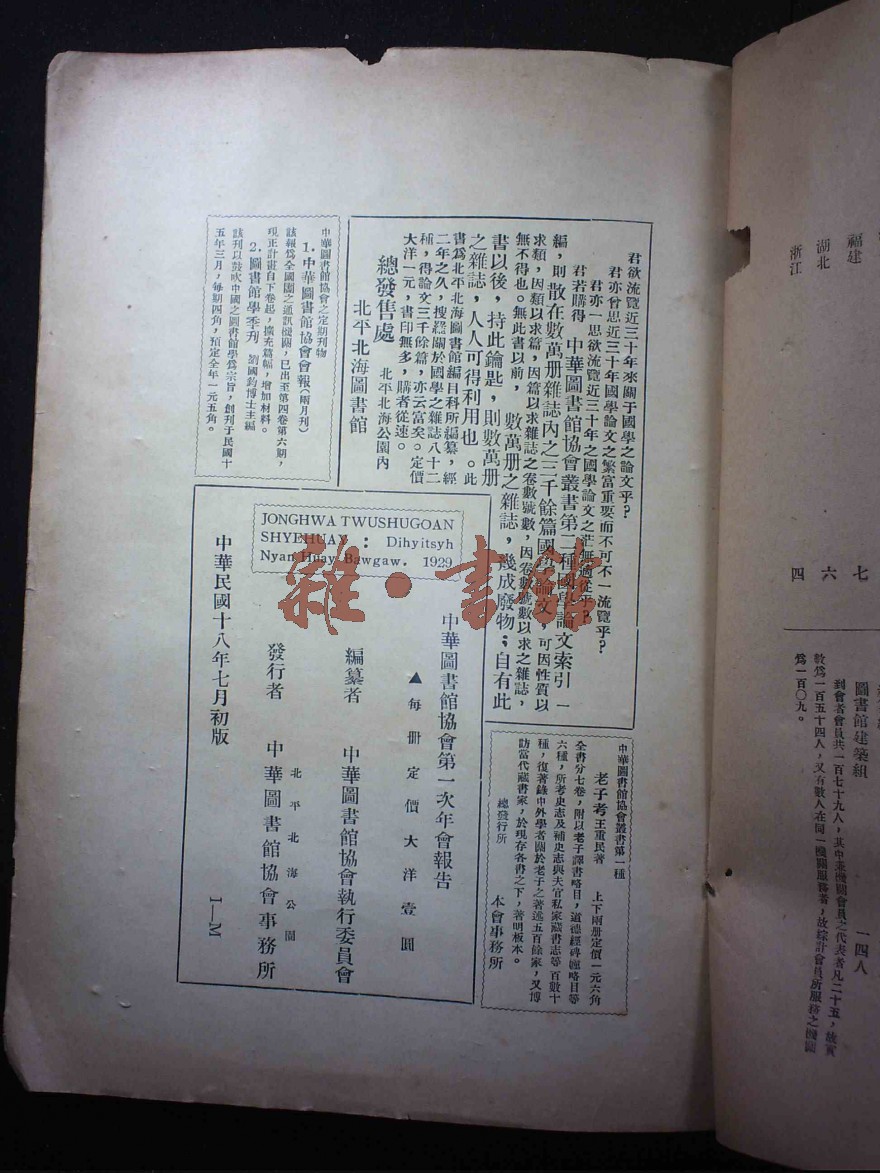 浙江
湖北
福建
四
六
七
圖書館建築組
一四人
到會者會員共一百七十九人，其中兼機關會員之代表者凡二十五，故實
數爲一百五十四人，又有數人在同一機關服務者，故綜計會員所服務之機關
爲一百〇九。
君欲流覽近三十年來關于國學之論文乎？
君亦曾思近三十年國學論文之繁富重要而不可不一流覽乎？
君亦一思欲流覽近三十年之國學論文之茫無適從乎？
君若購得 中華圖書館協會叢書第二種國學論文索引 一
編，則散在數萬册雜誌內之三千餘篇國學論文，可因性質以
求類，因類以求篇，因篇以求雜誌之卷數號數，因卷數號數以求之雜誌，
無不得也。無此書以前， 數萬册之雜誌，幾成廢物；自有此
書以後，持此鑰匙，則數萬册
之雜誌，人人可得利用也。此
書爲北平北海圖書館編目科所編纂，經
二年之久，搜羅關於國學之雜誌八十二
種，得論文三千餘篇，亦云富矣。定價
大洋一元，書印無多，購者從速。
總發售處 北平北海公園內
北平北海圖書館
中華圖書館協會之定期刊物
1.中華圖書館協會會報（兩月刊）
該報爲全國圖之通訊機關，已出至第四卷第六期，
現正計畫自下卷起，擴充篇幅，增加材料。
2.圖書館學季刊 劉國鈞博士主編
該刊以鼓吹中國之圖書館學爲宗旨，創刊于民國十
五年三月，每期四角，預定全年一元五角。
中華圖書館協會叢書第一種
老子考 王重民著 上下兩册定價一元六角
全書分七卷，附以老子譯書略目，道德經碑幢略目等
六種，所考史志及補史志與夫官私家藏書志等百數十
種，復著錄中外學者關於老子之著述五百餘家，又博
訪當代藏書家，於現存各書之下，著明板本。
總發行所 本會事務所
JONGHWA TWUSHUGOAN
SHYEHUAY : Dihyitsyh
Nyan Huay Bawgaw. 1929
中華圖書館協會第一次年會報告
▲每册定價大洋壹圓
編纂者 中華圖書館協會執行委員會
北平北海公園
發行者 中華圖書館協會事務所
中華民國十八年七月初版
I—M
雜·書館